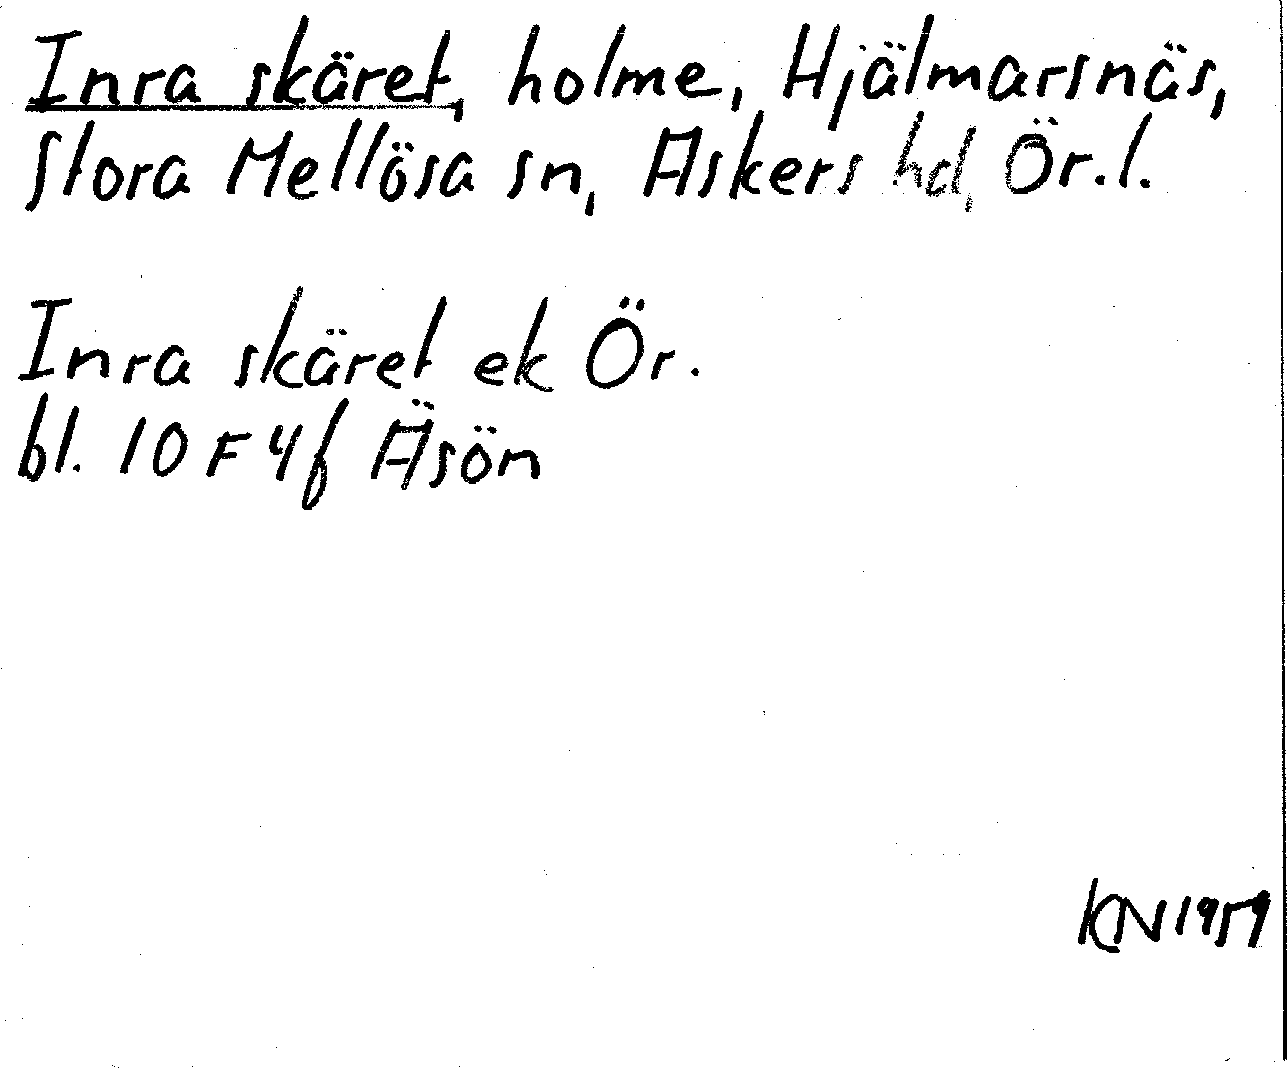 Inra skäret, holme, Hjälmarsnäs,
Stora Mellösa sn, Askers hd, Ör.l.
Inra skäret ek Ör.
bl. 10 F 4f Äsön
KN 1959